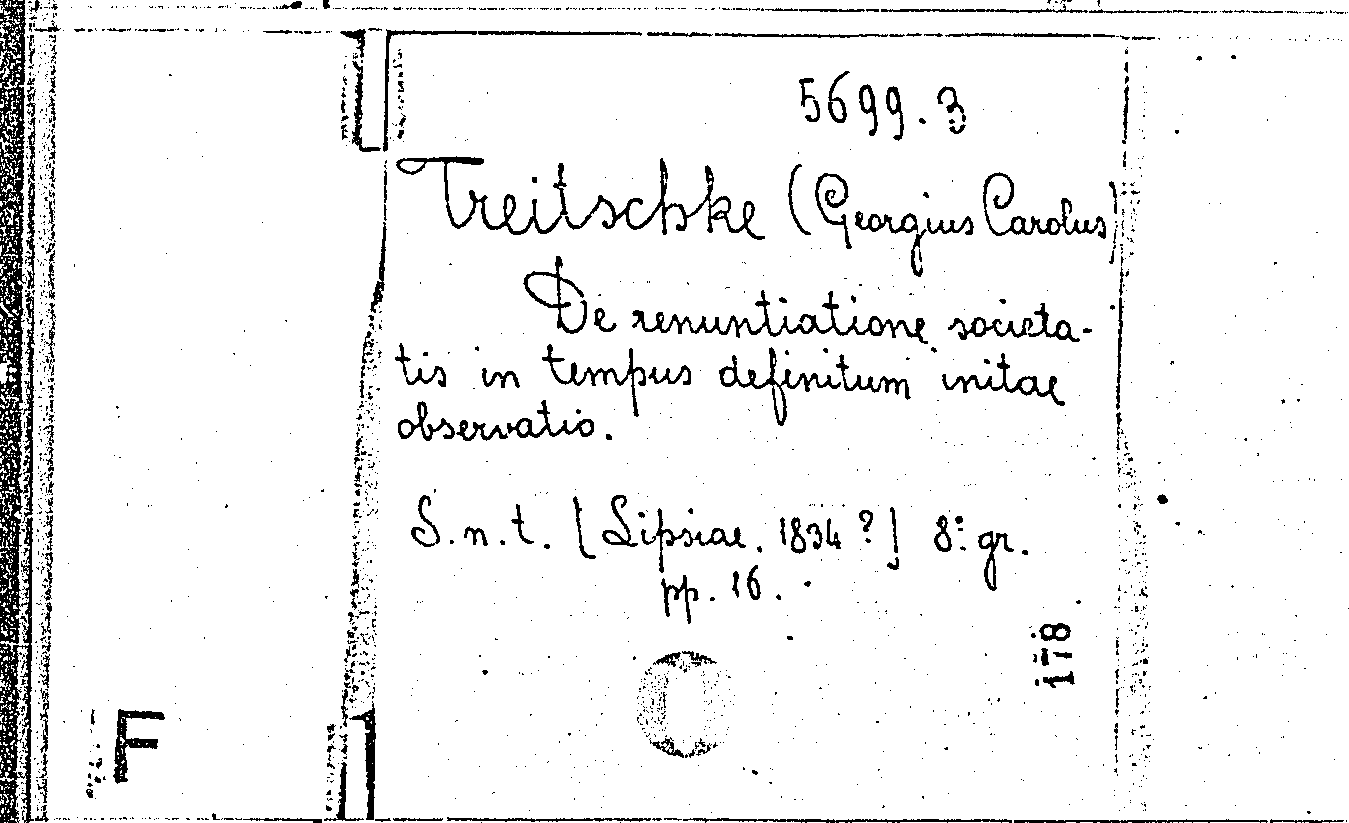 5699.3
Treitschke (Georgius Carolus)
De renuntiatione societa-
tis in tempus definitum initae
observatio.
S. n. t. [Lipsiae. 1834 ?] 8.º gr.
pp. 16.
178
F